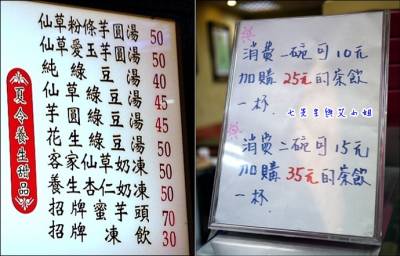 仙草粉條芋圓湯 50
仙草愛玉芋圓湯 50
純綠豆湯 40
仙草綠豆湯 45
芋圓綠豆湯 45
花生綠豆湯 50
客家仙草奶凍 50
養生杏仁奶凍 50
招牌蜜芋頭 70
招牌凍飲 30
夏令養生甜品
消費二碗可10元
加購25元的茶飲
一杯.
七先生與艾小姐
消費二碗可15元
加購35元的茶飲
一杯.